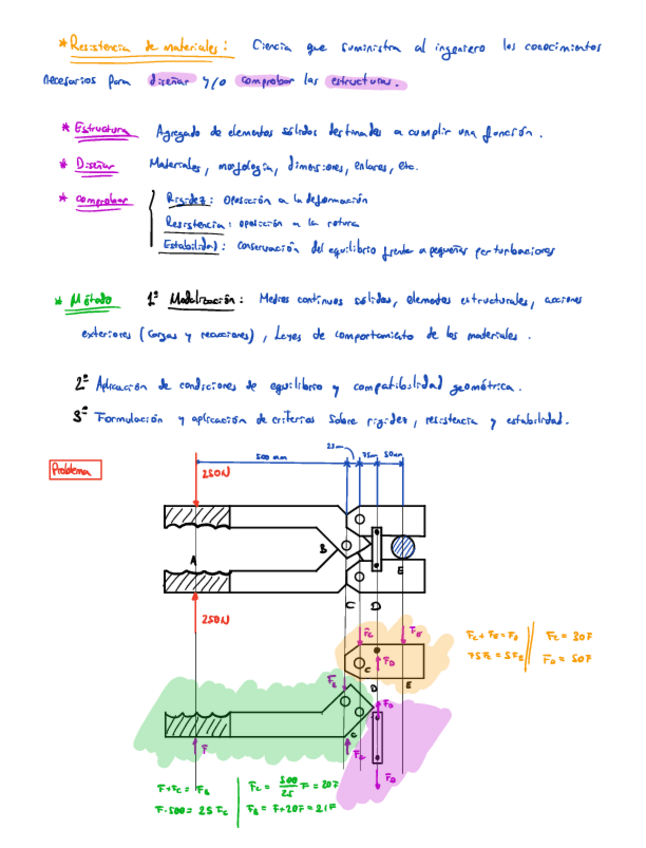 * Resistencia de materiales: Ciencia que suministra al ingeniero los conocimientos
necesarios para diseñar y/o comprobar las estructuras.
* Estructura Agregado de elementos sólidos destinados a cumplir una función.
* Diseñar Materiales, morfología, dimensiones, enlaces, etc.
* comprobar Rigidez: Oposición a la deformación
Resistencia: oposición a la rotura
Estabilidad: Conservación del equilibrio frente a pequeñas perturbaciones
* Método 1º Modelización: Medios continuos sólidos, elementos estructurales, acciones
exteriores (Cargas y reacciones), Leyes de comportamiento de los materiales.
2º Aplicación de condiciones de equilibrio y compatibilidad geométrica.
3º Formulación y aplicación de criterios sobre rigidez, resistencia y estabilidad.
Problema
500 mm
250N
A
B
E
C D
250N
Fc FE
C FD
D E
Fc + FE = FD FE = 30F
FD = 50F
FB
FD
F C
FD
F + Fc = FB Fc = 500/25 F = 20F
F·500 = 25 Fc FB = F + 20F = 21F